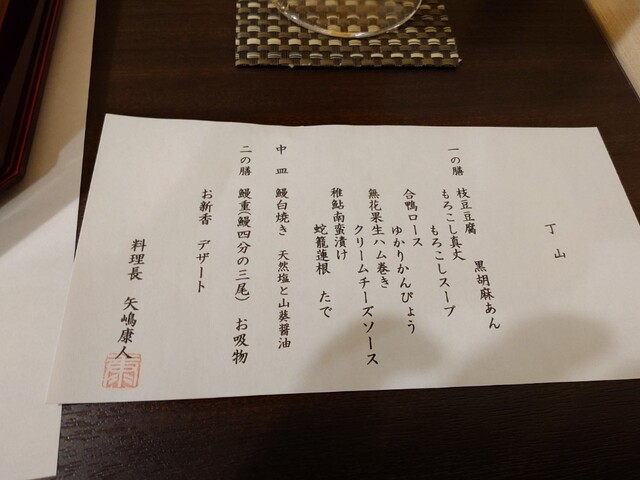 丁山
一の膳 枝豆豆腐 黒胡麻あん
もろこし真丈 もろこしスープ
合鴨ロース ゆかりかんぴょう
無花果生ハム巻き クリームチーズソース
稚鮎南蛮漬け 蛇籠蓮根 たで
中皿 鰻白焼き 天然塩と山葵醤油
二の膳 鰻重(鰻四分の三尾) お吸物
お新香 デザート
料理長 矢嶋康人